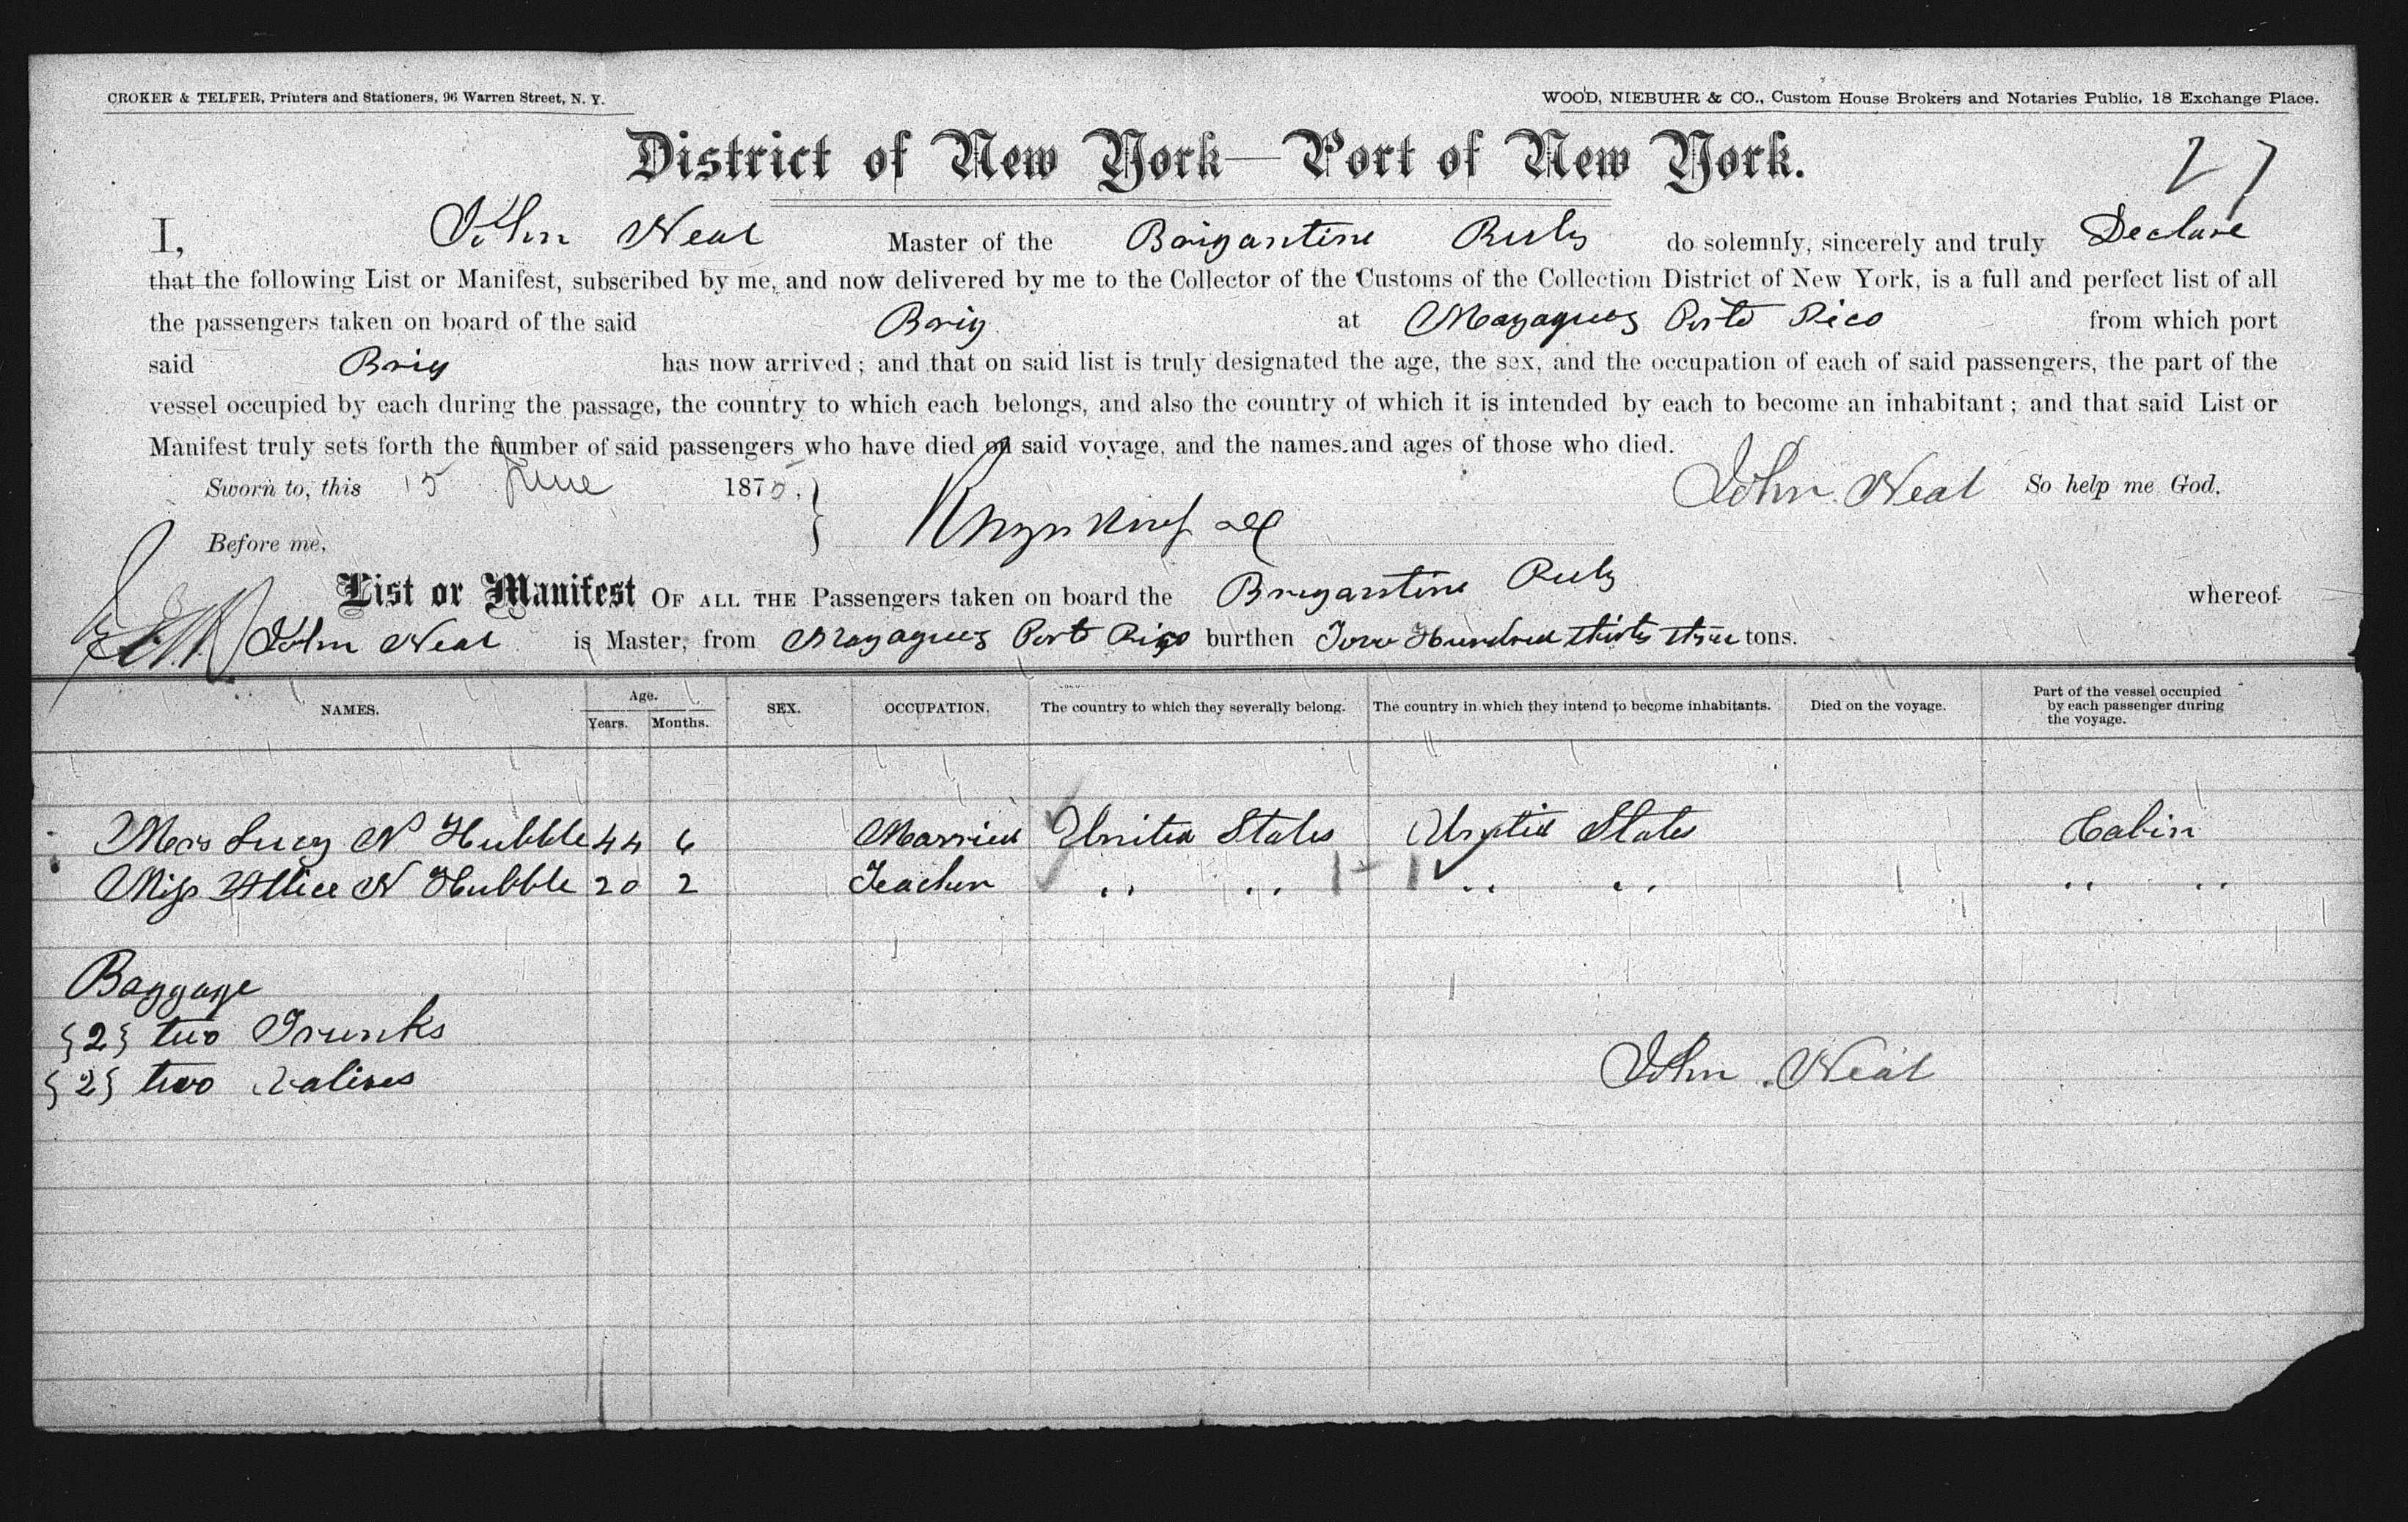 CROKER & TELFER, Printers and Stationers, 96 Warren Street, N. Y.
WOOD, NIEBUHR & CO., Custom House Brokers and Notaries Public, 18 Exchange Place.
District of New York—Port of New York.
27
I, John Neal Master of the Brigantine Ruby do solemnly, sincerely and truly Declare
that the following List or Manifest, subscribed by me, and now delivered by me to the Collector of the Customs of the Collection District of New York, is a full and perfect list of all
the passengers taken on board of the said Brig at Mayaguez Porto Rico from which port
said Brig has now arrived; and that on said list is truly designated the age, the sex, and the occupation of each of said passengers, the part of the
vessel occupied by each during the passage, the country to which each belongs, and also the country of which it is intended by each to become an inhabitant; and that said List or
Manifest truly sets forth the number of said passengers who have died on said voyage, and the names and ages of those who died.
Sworn to, this 15 June 1875. John Neal So help me God.
Before me,
List or Manifest OF ALL THE Passengers taken on board the Brigantine Ruby whereof
John Neal is Master, from Mayaguez Port Rico burthen Two Hundred thirty three tons.
NAMES. Age. Years. Months. SEX. OCCUPATION. The country to which they severally belong. The country in which they intend to become inhabitants. Died on the voyage. Part of the vessel occupied by each passenger during the voyage.
Mrs Lucy N Hubble 44 6 Married United States United States Cabin
Miss Allice N Hubble 20 2 Teacher " " " " " "
Baggage
{2} two Trunks
{2} two Valises
John Neal